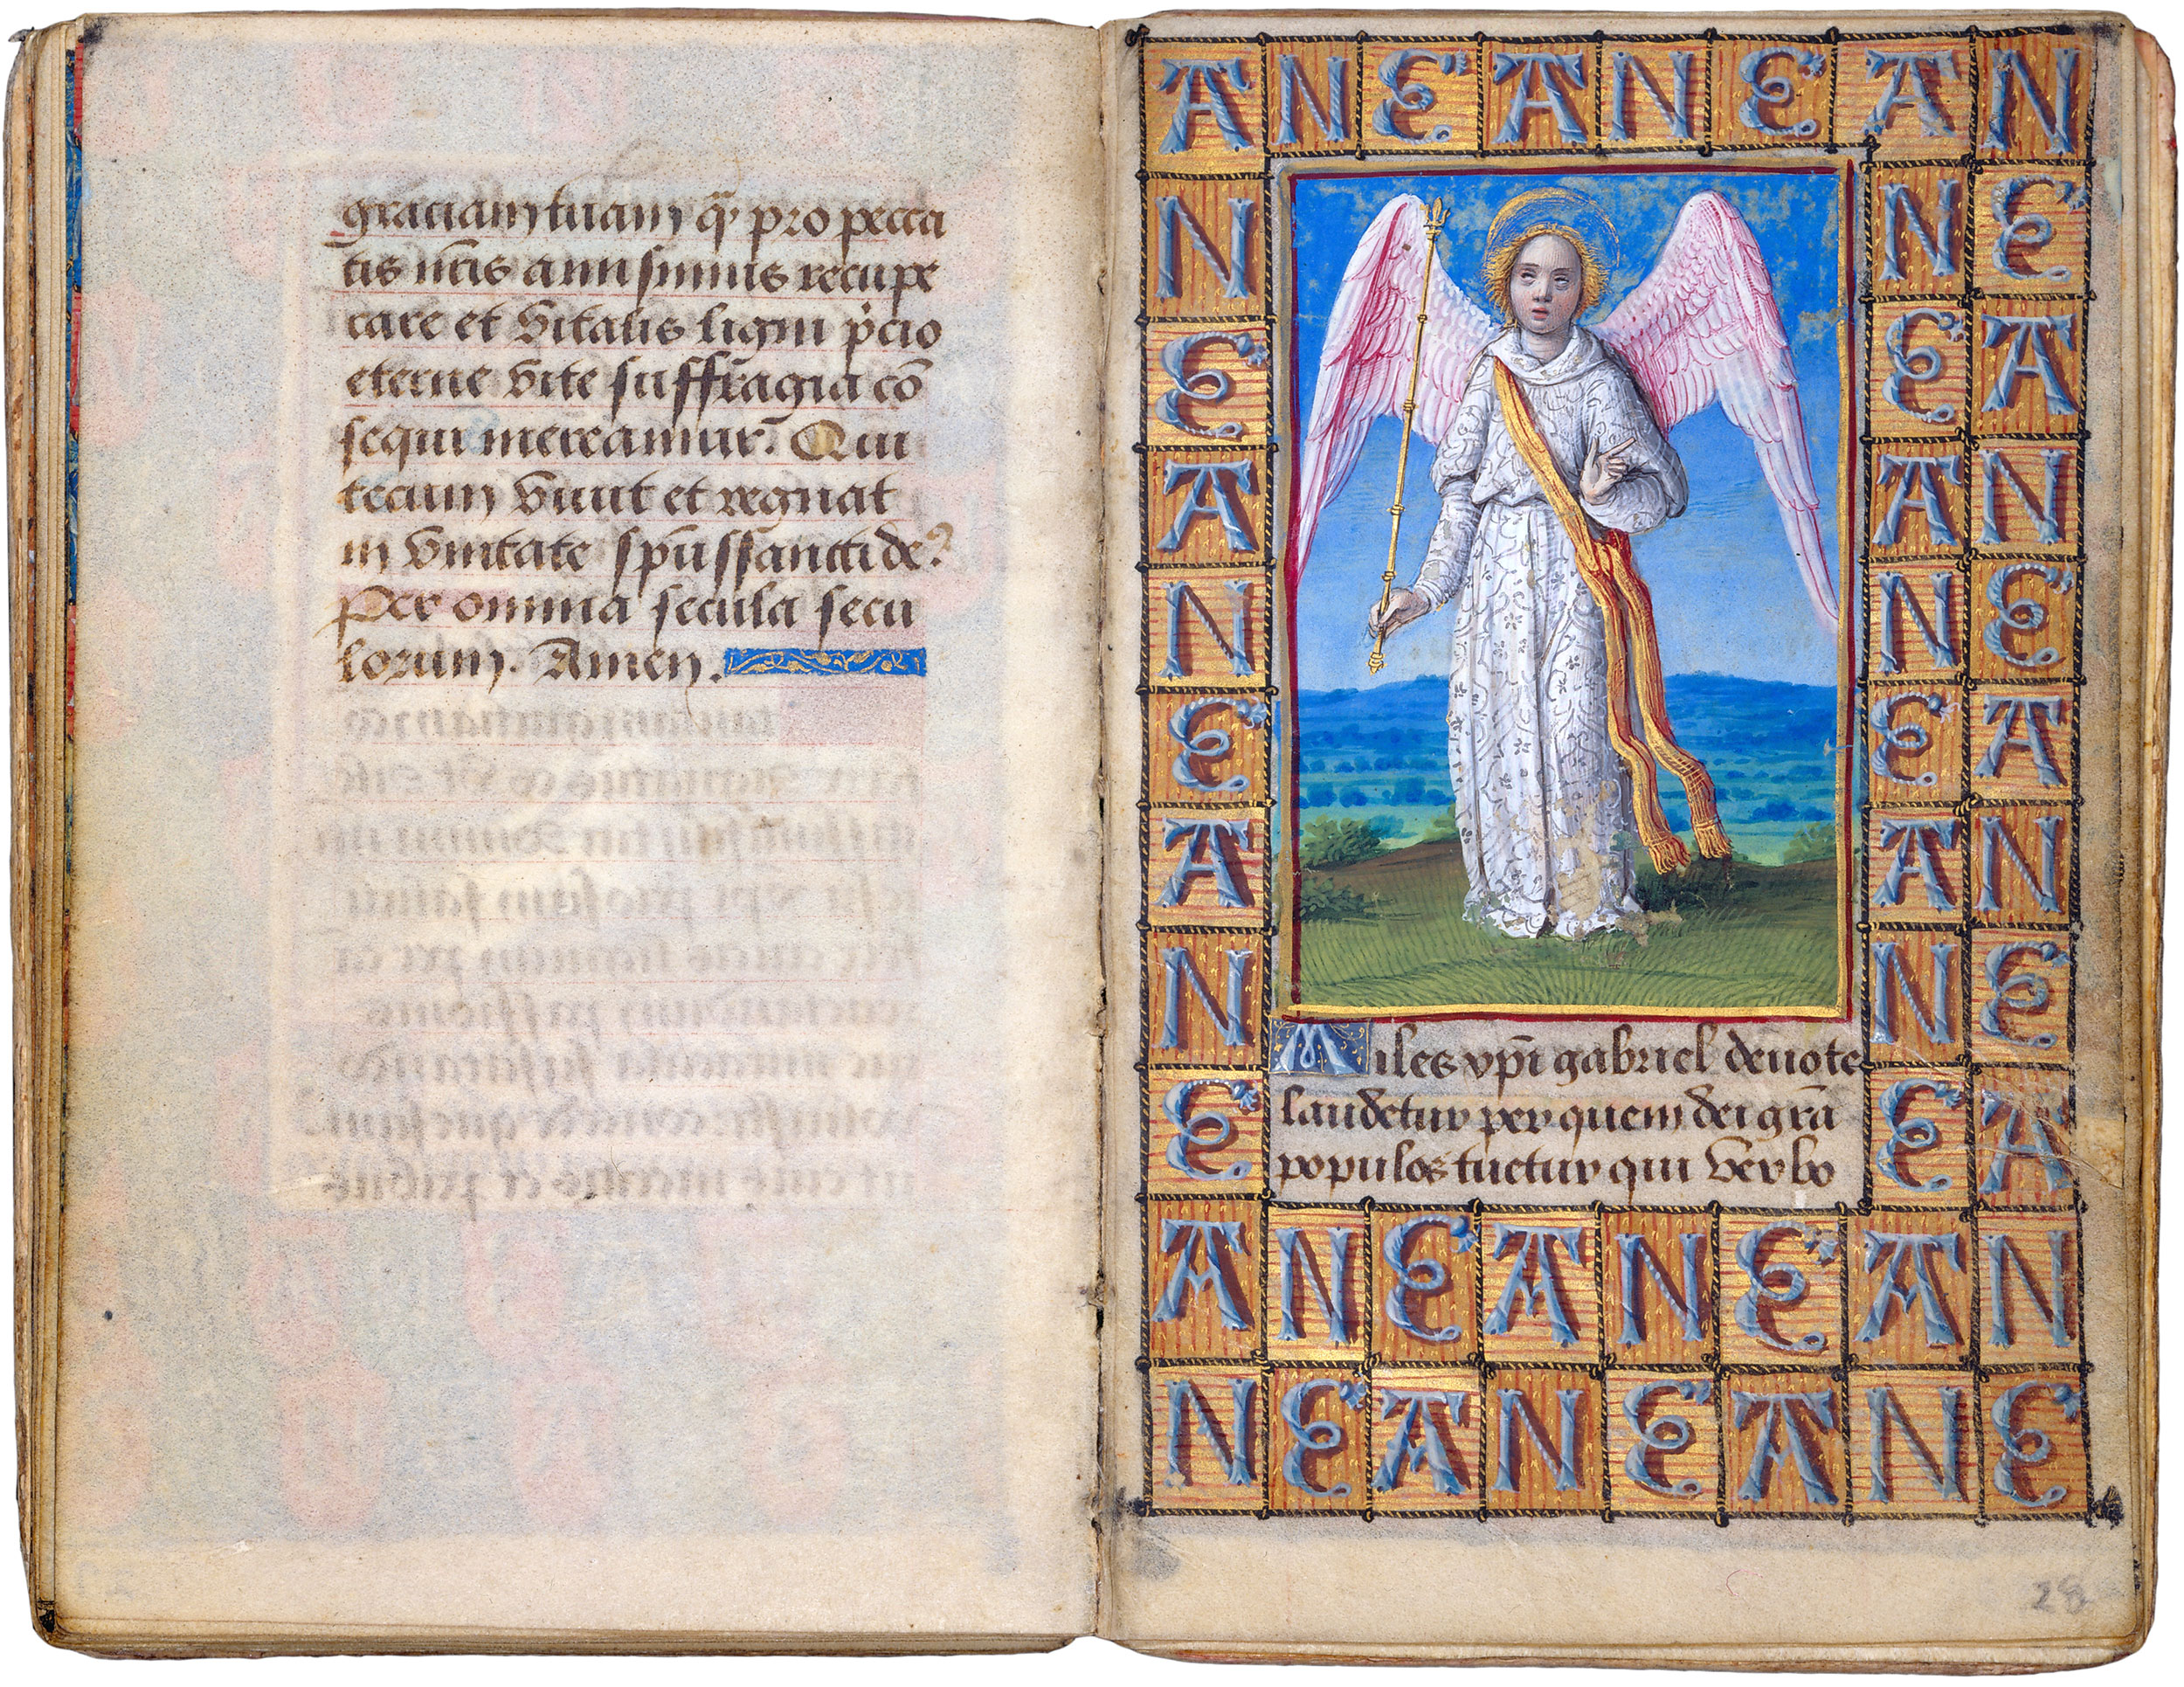 graciam tuam q̄ pro pecca
tis nr̄is amisimus recupe
rare et vitalis ligni p̄cio
eterne vite suffragia cō
sequi mereamur. Qui
tecum viuit et regnat
in vnitate sp̄ussancti de?
Per omnia secula secu
lorum. Amen.
A N E A N E A N
N N E
E E A
A A N
N N E
E E A
A A N
N N E
Miles xp̄i gabriel deuote
laudetur per quem dei grā
populos tuetur qui verbo
E E A
A N E A N E A N
N E A N E A N E
28